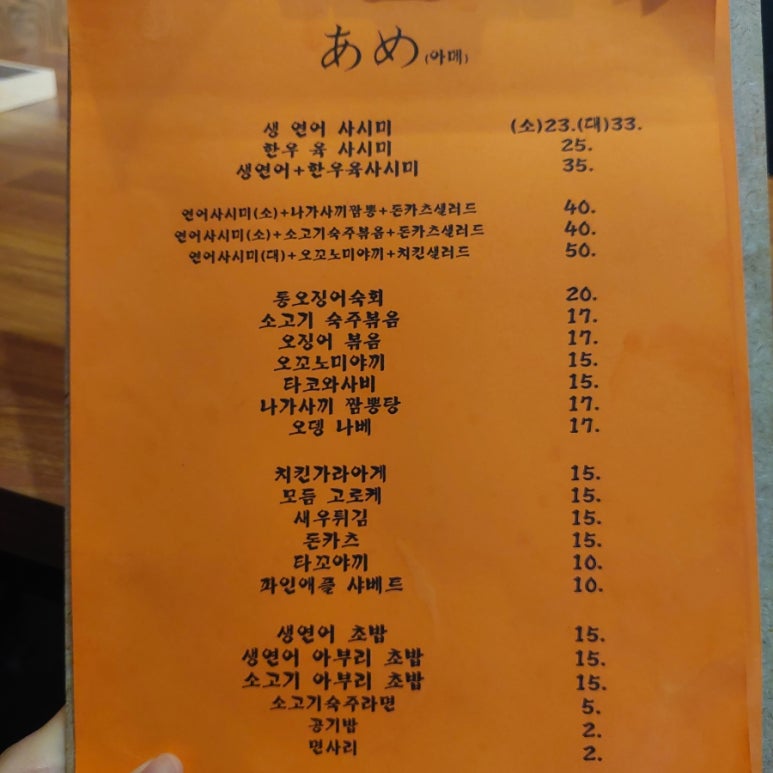 あめ(아메)
생 연어 사시미 (소)23.(대)33.
한우 육 사시미 25.
생연어+한우육사시미 35.
연어사시미(소)+나가사끼짬뽕+돈카츠샐러드 40.
연어사시미(소)+소고기숙주볶음+돈카츠샐러드 40.
연어사시미(대)+오꼬노미야끼+치킨샐러드 50.
통오징어숙회 20.
소고기 숙주볶음 17.
오징어 볶음 17.
오꼬노미야끼 15.
타코와사비 15.
나가사끼 짬뽕탕 17.
오뎅 나베 17.
치킨가라아게 15.
모듬 고로케 15.
새우튀김 15.
돈카츠 15.
타꼬야끼 10.
파인애플 샤베트 10.
생연어 초밥 15.
생연어 아부리 초밥 15.
소고기 아부리 초밥 15.
소고기숙주라면 5.
공기밥 2.
면사리 2.